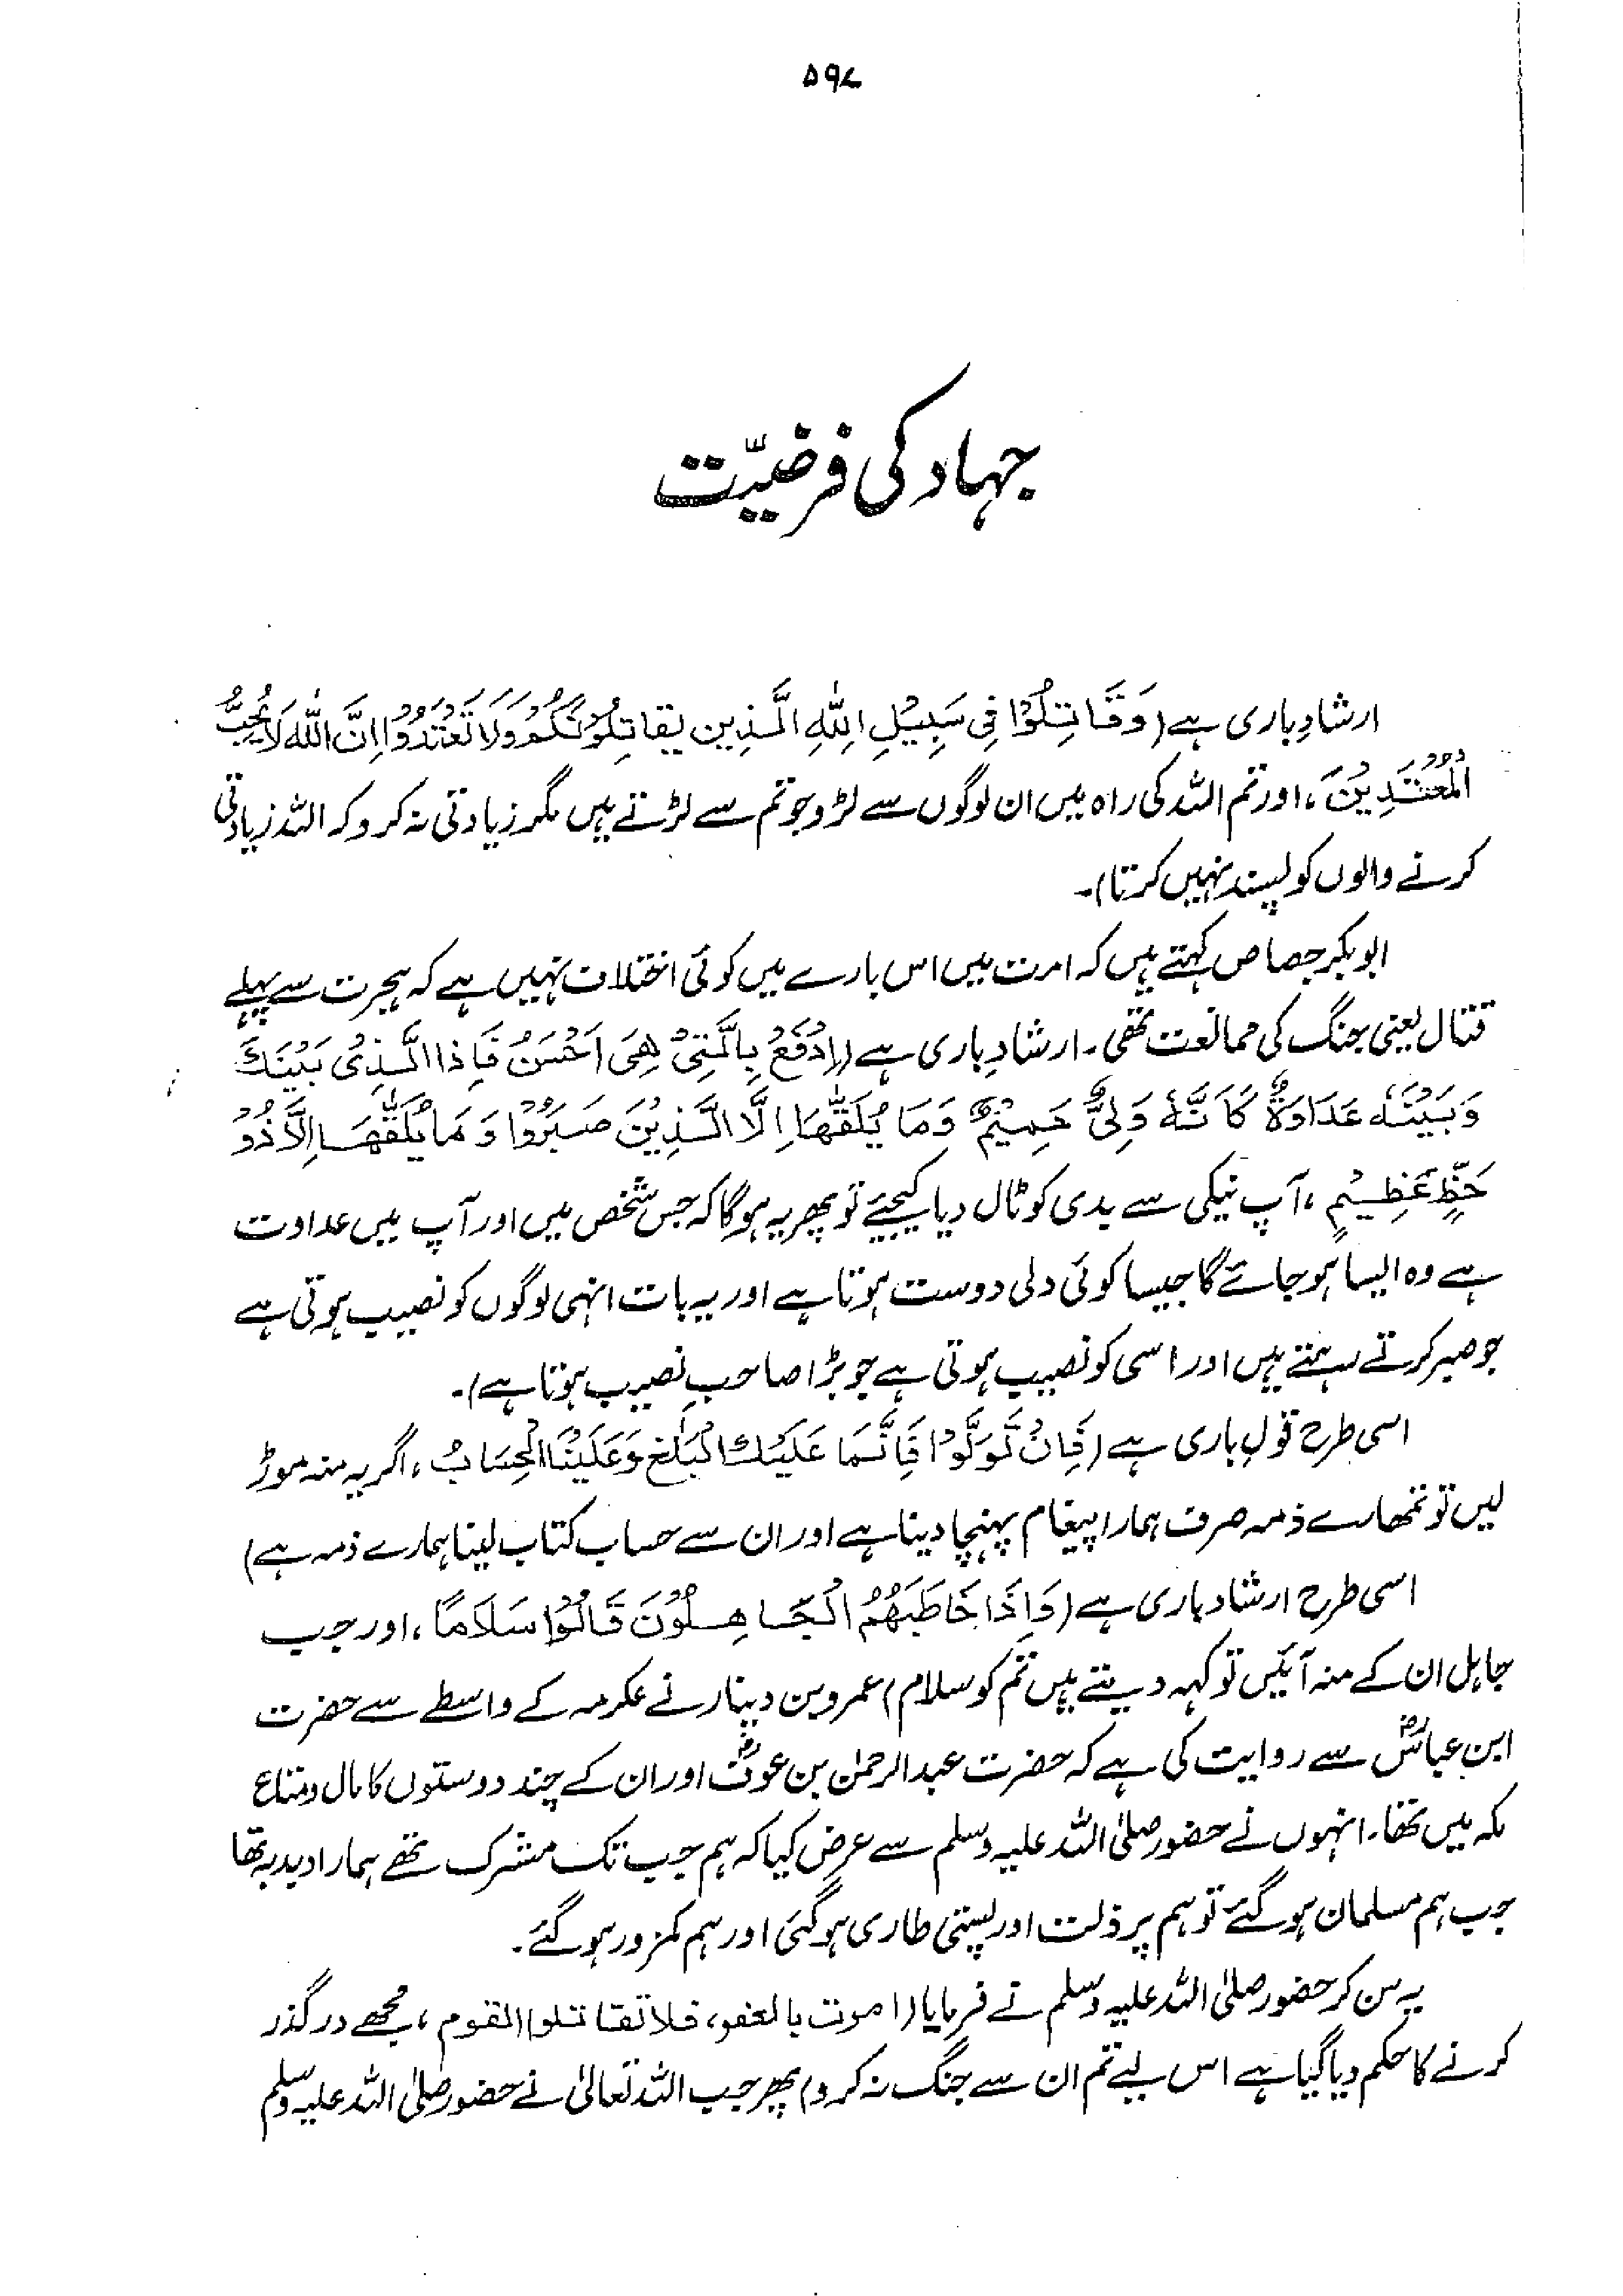 ۵۹۷
جہاد کی فرضیّت
ارشادِ باری ہے (وَقَاتِلُوْا فِی سَبِیْلِ اللّٰہِ الَّذِین یقاتِلُوْنَکُمْ وَلَا تَعْتَدُوْا اِنَّ اللّٰہَ لَا یُحِبُّ
الْمُعْتَدِیْنَ، اور تم اللہ کی راہ میں ان لوگوں سے لڑو جو تم سے لڑتے ہیں مگر زیادتی نہ کرو کہ اللہ زیادتی
کرنے والوں کو پسند نہیں کرتا)۔
ابوبکر جصاص کہتے ہیں کہ امت میں اس بارے میں کوئی اختلاف نہیں ہے کہ ہجرت سے پہلے
قتال یعنی جنگ کی ممانعت تھی۔ ارشادِ باری ہے (اِدْفَعْ بِالَّتِیْ ھِیَ اَحْسَنُ فَاِذا الَّذِیْ بَیْنَکَ
وَبَیْنَہٗ عَدَاوَۃٌ کَاَنَّہٗ وَلِیٌّ حَمِیْمٌ وَمَا یُلَقّٰھَا اِلَّا الَّذِیْنَ صَبَرُوْا وَمَا یُلَقّٰھَا اِلَّا ذُوْ
حَظٍّ عَظِیْمٍ، آپ نیکی سے بدی کو ٹال دیا کیجیئے تو پھر یہ ہوگا کہ جس شخص میں اور آپ میں عداوت
ہے وہ ایسا ہو جائے گا جیسا کوئی دلی دوست ہوتا ہے اور یہ بات انہی لوگوں کو نصیب ہوتی ہے
جو صبر کرتے رہتے ہیں اور اسی کو نصیب ہوتی ہے جو بڑا صاحبِ نصیب ہوتا ہے)۔
اسی طرح قولِ باری ہے (فَاِنْ تَوَلَّوْا فَاِنَّمَا عَلَیْکَ الْبَلٰغ وَعَلَیْنَا الْحِسَابُ، اگر یہ منہ موڑ
لیں تو تمھارے ذمہ صرف ہمارا پیغام پہنچا دینا ہے اور ان سے حساب کتاب لینا ہمارے ذمہ ہے)
اسی طرح ارشاد باری ہے (وَاِذَا خَاطَبَھُمُ الْجَاھِلُوْنَ قَالُوْا سَلَامًا، اور جب
جاہل ان کے منہ آئیں تو کہہ دیتے ہیں تم کو سلام) عمرو بن دینار نے عکرمہ کے واسطے سے حضرت
ابن عباسؓ سے روایت کی ہے کہ حضرت عبدالرحمٰن بن عوفؓ اور ان کے چند دوستوں کا مال و متاع
مکہ میں تھا۔ انہوں نے حضور صلی اللہ علیہ وسلم سے عرض کیا کہ ہم جب تک مشرک تھے ہمارا دبدبہ تھا
جب ہم مسلمان ہو گئے تو ہم پر ذلت اور پستی طاری ہو گئی اور ہم کمزور ہو گئے۔
یہ سن کر حضور صلی اللہ علیہ وسلم نے فرمایا (امرت بالعفو، فلا تقاتلوا القوم، مجھے درگذر
کرنے کا حکم دیا گیا ہے اس لیے تم ان سے جنگ نہ کرو) پھر جب اللہ تعالیٰ نے حضور صلی اللہ علیہ وسلم